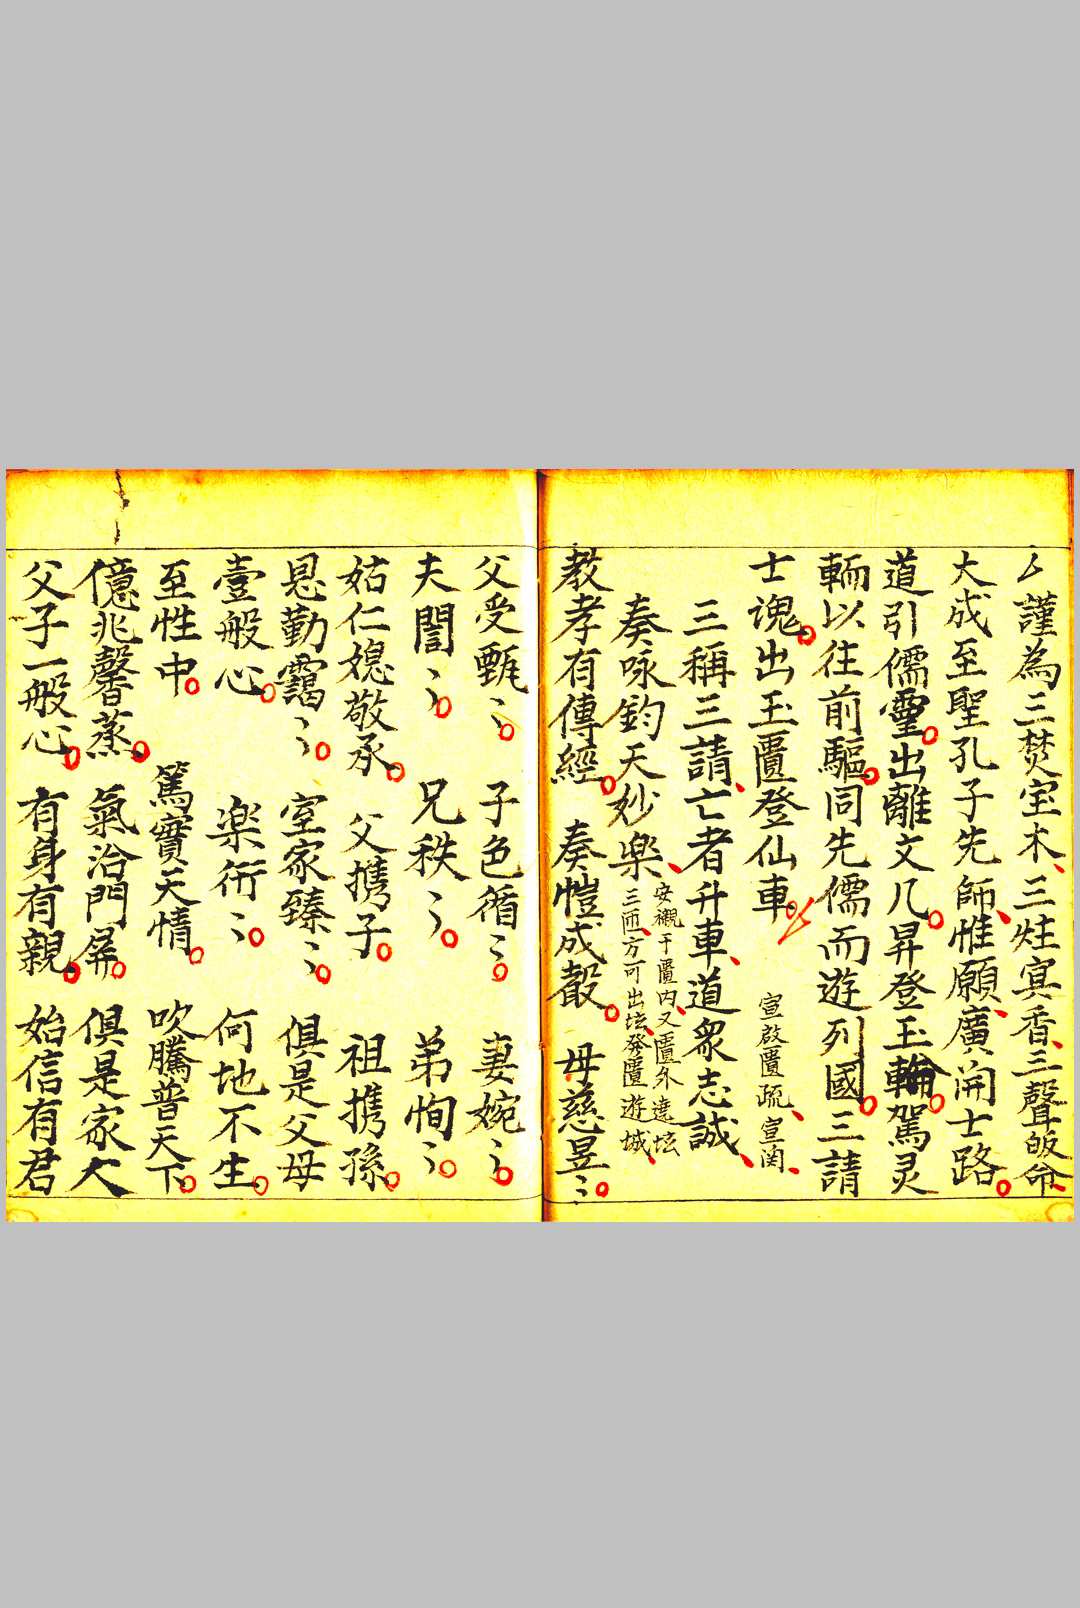 厶謹為三焚宝木三炷寅香三聲皈命
大成至聖孔子先師惟願廣開士路
道引儒靈出離文几昇登玉輪駕灵
輀以往前驅同先儒而遊列國三請
士魂出玉匱登仙車 宣啟匱疏宣関
三稱三請亡者升車道眾志誠
奏咏鈞天妙樂 安襯于匱内又匱外遶坛
三匝方可出坛發匱遊城
教孝有傳經 奏愷成穀 母慈昱〻
父受甄〻 子色循〻 妻婉〻
夫誾〻 兄秩〻 弟恂〻
姑仁媳敬承 父携子 祖携孫
恳勤靄〻 室家臻〻 俱是父母
壹般心 楽衎〻 何地不生
至性中 篤實天情 吹騰普天下
億兆馨蒸 氣洽門屏 俱是家人
父子一般心 有身有親 始信有君